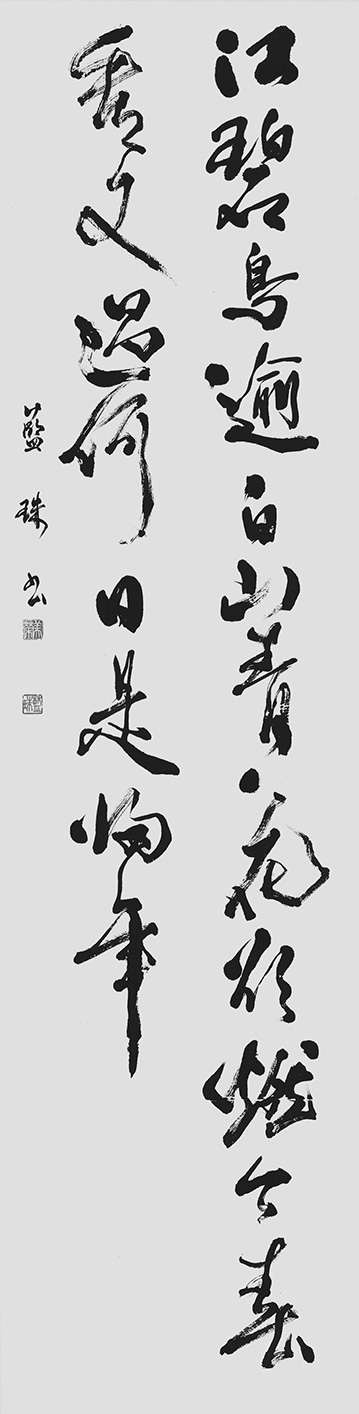 江碧鳥逾白山青花欲燃今春
看又過何日是歸年
藍珠書